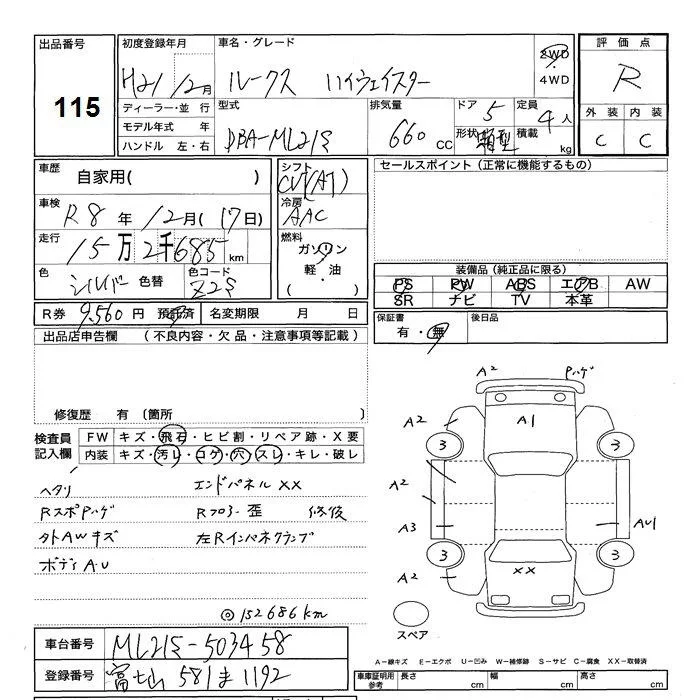 出品番号
115
初度登録年月
H21年12月
車名・グレード
ルークス ハイウェイスター
2WD
4WD
評価点
R
ディーラー・並行
モデル年式 年
ハンドル 左・右
型式
DBA-ML21S
排気量
660 CC
ドア 5
形状 箱型
定員 4人
積載 kg
外装 内装
C C
車歴
自家用( )
シフト
CVT(AT)
セールスポイント(正常に機能するもの)
車検
R8年12月(17日)
冷房
AAC
走行
15万2千685km
燃料
ガソリン
軽・油
( )
色
シルバー 色替
色コード
Z2S
装備品(純正品に限る)
PS PW ABS エアB AW
SR ナビ TV 本革
R券 9,560円 預託済 名変期限 月 日
保証書
有・無
後日品
出品店申告欄 (不良内容・欠品・注意事項等記載)
修復歴 有(箇所
検査員
記入欄
FW キズ・飛石・ヒビ割・リペア跡・X要
内装 キズ・汚レ・コゲ・穴・スレ・キレ・破レ
ヘタリ エンドパネルXX
RスポPハゲ Rフロアー歪 修復
外AWキズ 左Rインパネクランプ
ボディA.U
◎152686km
A2 Pハゲ
A2 A1
3 3
A2
A3 AU1
3 3
A2 XX
スペア
A-線キズ E-エクボ U-凹み W-補修跡 S-サビ C-腐食 XX-取替済
車台番号 ML21S-503458
登録番号 富士山 581 ま 1192
車庫証明用
参考
長さ cm 幅 cm 高さ cm